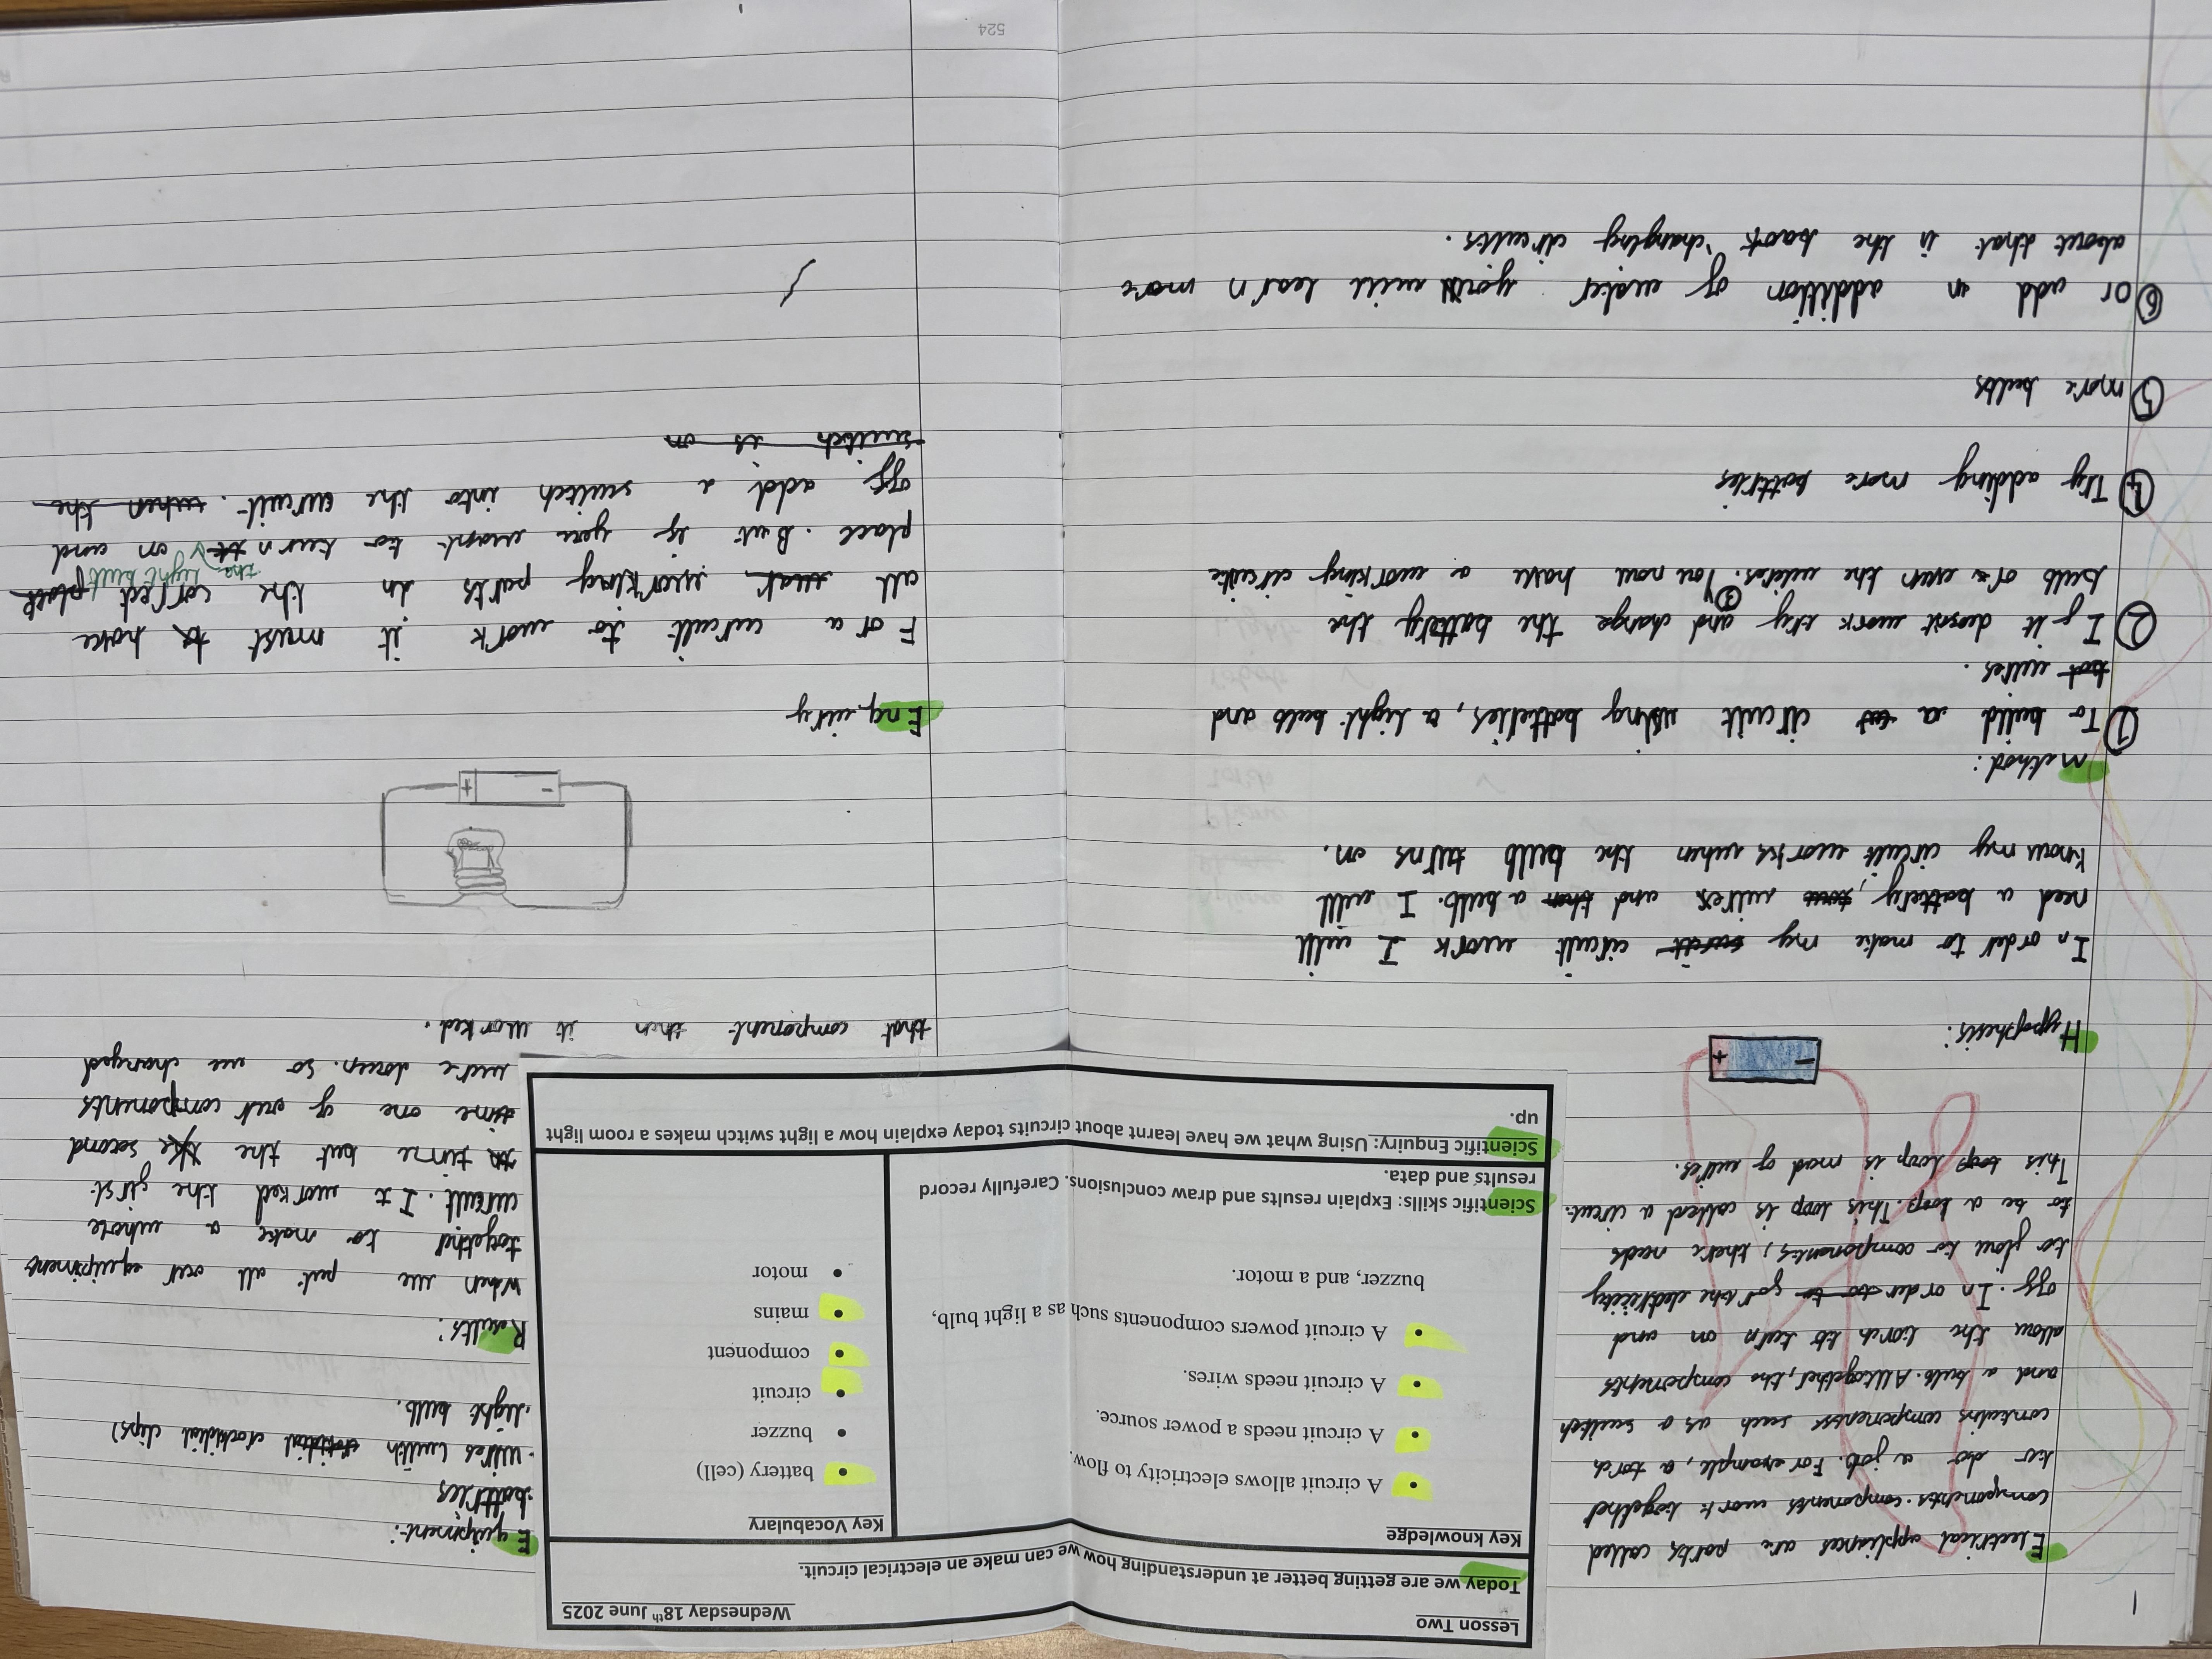 Lesson Two
Wednesday 18th June 2025
Today we are getting better at understanding how we can make an electrical circuit.
Key knowledge
• A circuit allows electricity to flow.
• A circuit needs a power source.
• A circuit needs wires.
• A circuit powers components such as a light bulb,
buzzer, and a motor.
Key Vocabulary
• battery (cell)
• buzzer
• circuit
• component
• mains
• motor
Scientific skills: Explain results and draw conclusions. Carefully record
results and data.
Scientific Enquiry: Using what we have learnt about circuits today explain how a light switch makes a room light
up.
Electrical appliances are parts called
components. components work together
to do a job. For example, a torch
contains components such as a switch
and a bulb. Alltogether, the components
allow the torch to turn on and
off. In order to for the electricity
to flow to components, there needs
to be a loop. This loop is called a circut.
This loop is mad of wires.
+ -
Hypophesis:
In order to make my circuit work I will
need a battery, wires and a bulb. I will
know my circuit works when the bulb turns on.
Method:
① To build a circuit using batteries, a light bulb and
wires.
② If it doesn't work try and change the battery the
bulb or even the wires. ③ You now have a working circuit
④ Try adding more battries
⑤ more bulbs
⑥ or add in addition of wires you will learn more
about that in the book "changing circuits.
Equipment:
• battries
• wires (with clips)
• light bulb.
Results:
When we put all our equipment
together to make a whole
circuit. It worked the first
time but the second
time one of our components
were down. so we changed
that component then it worked.
+ -
Enquiry
For a circuit to work it must have
all working parts in the correct
place. But if you want to turn the light bulb on and
off add a switch into the circuit. when the
switch is on
524